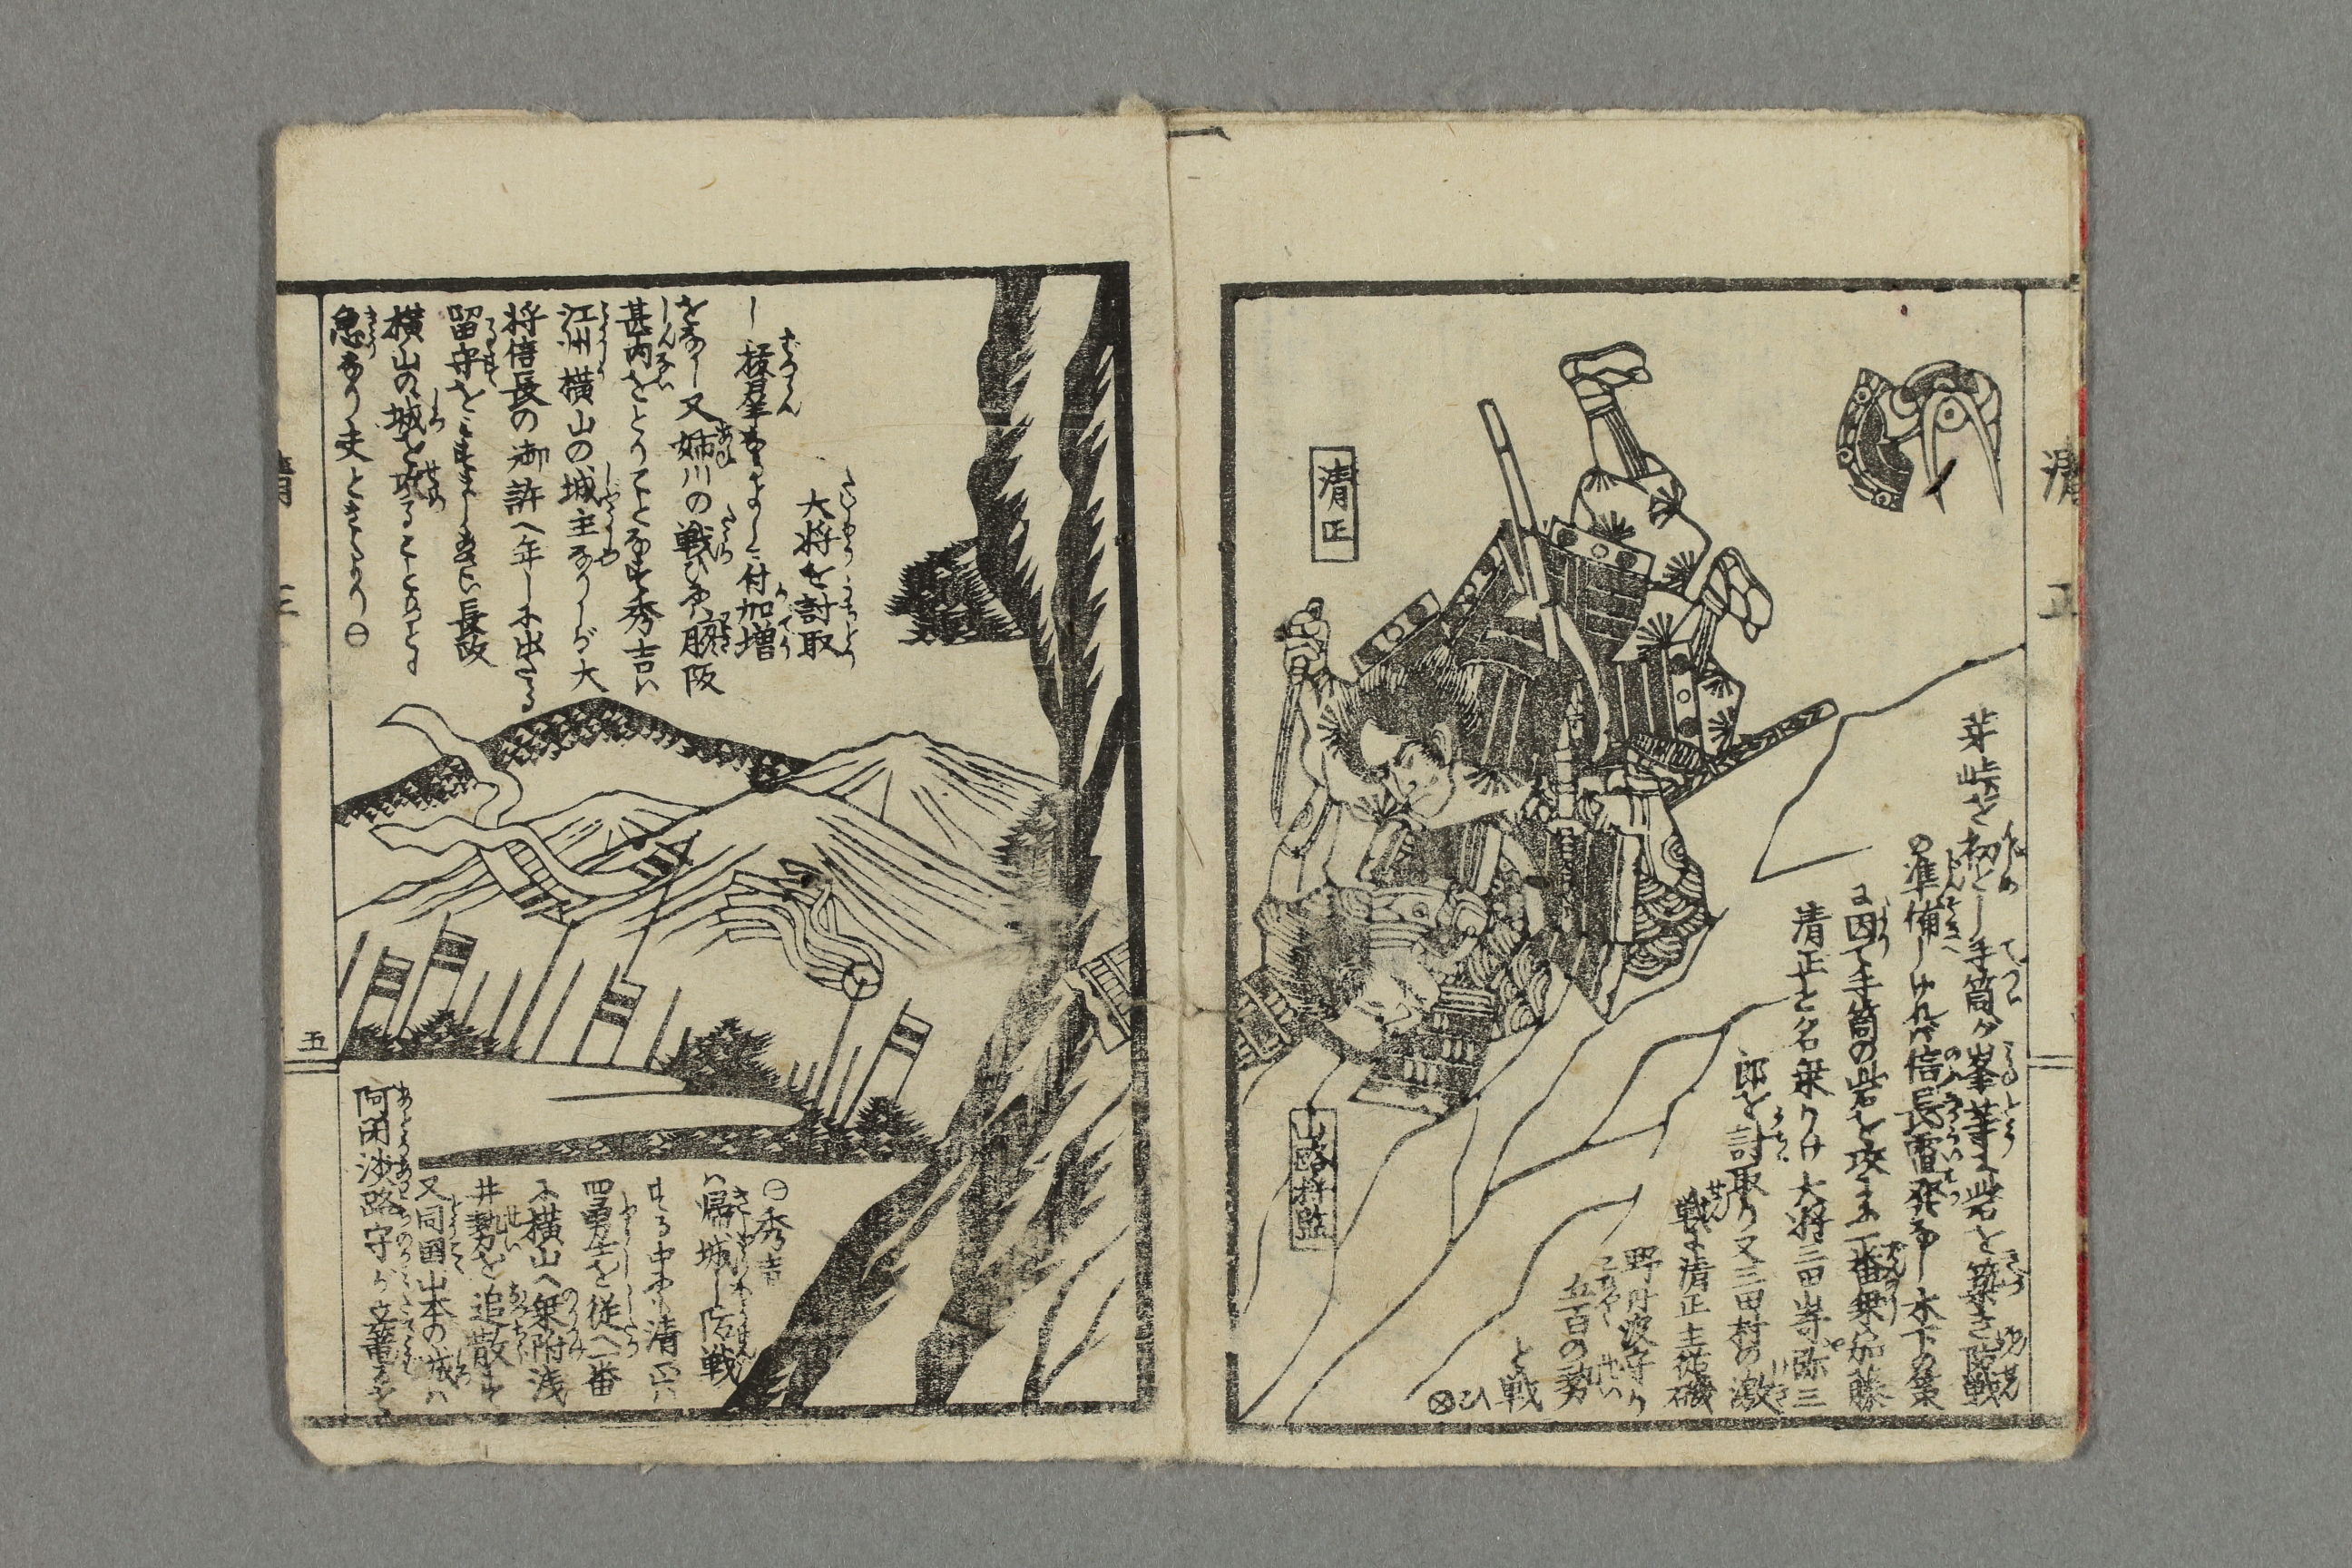 清正
芽峠を初とし手筒が峯等に砦を築き防戦
の準備しければ信長雷発なし木下の策
に因て手筒の砦を攻るに一番乗加藤
清正と名乗りけ大将三田寺弥三
郎を討取り又三田村の激
戦に清正主従磯
野丹波守が
五百の勢
と戦
ひ⊗
清正
山路将監
大将を討取
し
をなし又姉川の戦ひに脇阪
甚内をとりことなす秀吉ハ
江洲横山の城主なりしが大
将信長の御許へ年しに出たる
留守を
長阪
横山の城を攻ること
急なり夫ときくより㊀
㊀秀吉
ハ帰城し防戦
する中にも清正ハ
四勇士を従へ一番
に横山へ乗附浅
井勢を追散す
又同国山本の城ハ
阿閉淡路守が立篭る
五